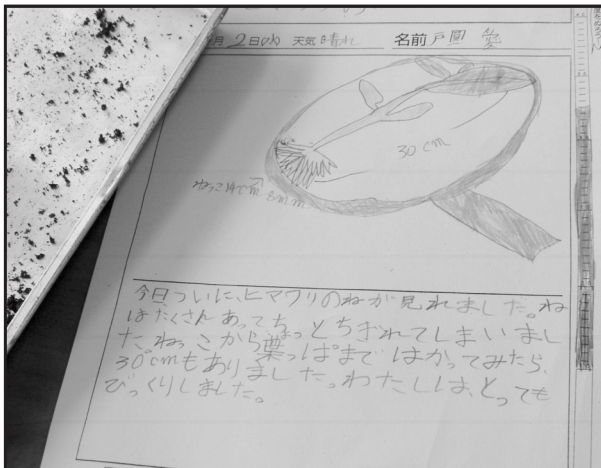 月2日(水) 天気 晴れ 名前 戸
30cm
8mm
今日ついに、ヒマワリのねが見れました。ね
はたくさんあってちょっとちぎれてしまいまし
た。ねっこから葉っぱまではかってみたら、
30cmもありました。わたしは、とっても
びっくりしました。